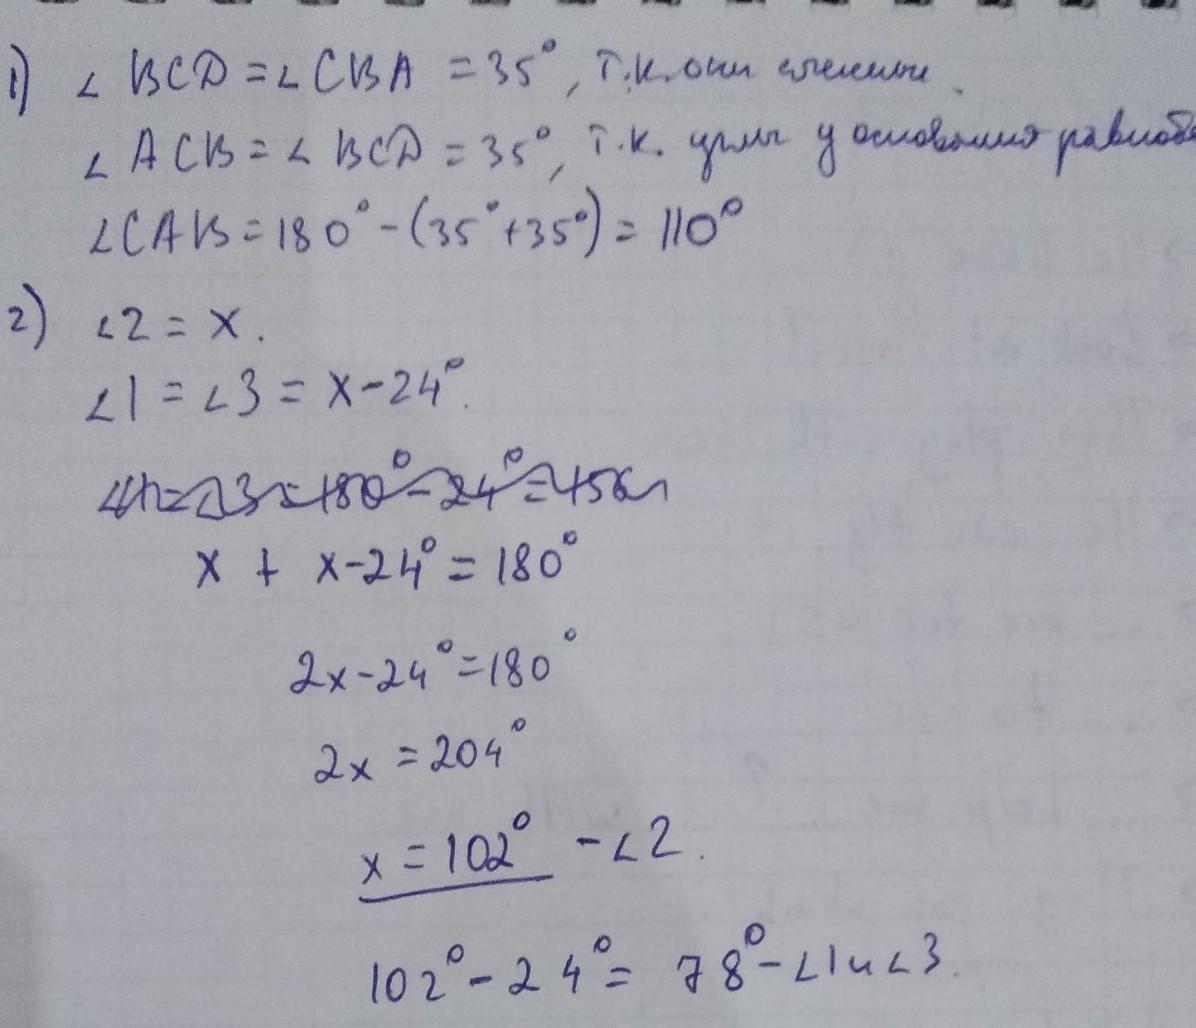 1) ∠ BCD = ∠ CBA = 35°, т.к. они
∠ ACB = ∠ BCD = 35°, т.к. углы у основания равноб
∠CAB = 180° - (35° + 35°) = 110°
2) ∠2 = x.
∠1 = ∠3 = x - 24°.
x + x - 24° = 180°
2x - 24° = 180°
2x = 204°
x = 102° - ∠2.
102° - 24° = 78° - ∠1 и ∠3.